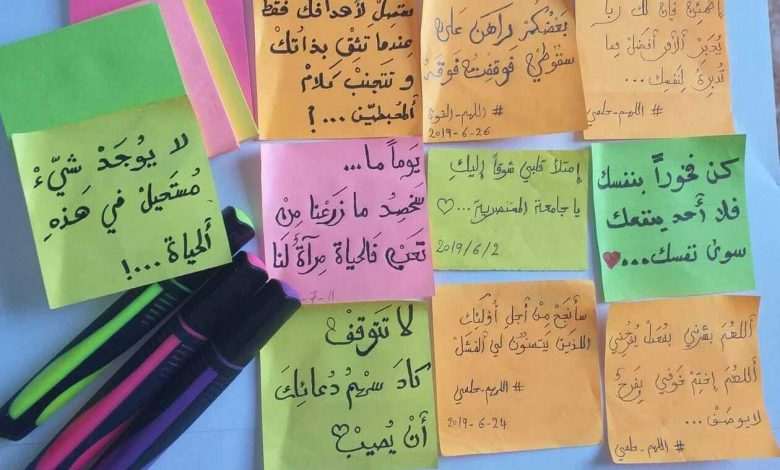 ستصل لأهدافك فقط
عندما تثق بذاتك
و تتجنب كلام
المحبطين ...!
بعضكم راهن على
سقوطي فوقفت فوقه
# اللهم_القوة
2019-6-26
إطمئن فإن لك ربا
يُدبر الأمر أفضل مما
تدبره لنفسك ...
# اللهم_حلمي
لا يوُجَدْ شيْءْ
مُستَحيل في هَذهِ
الحياة ...!
يَوماً ما...
سَنحصِد ما زرعْنا مِنْ
تعَب فالحياة مِرآةُ لَنا
7-11
إمتلأ قلبي شوقا إليكِ
يا جامعة المستنصرية ...♡
2019/6/2
كن فخوراً بنفسك
فلا أحد ينفعك
سوى نفسك...♥
لا تتوقف
كادَ سهمُ دُعائِكَ
أنْ يُصيب♡
سأنجح مِن أجل أولئك
اللذين يتمنون لي الفشل
# اللهم_حلمي
2019-6-24
اللهُمَ بشرني بفعل يُفرحُني
اللهُمَ إختِمْ خوفي بِفرحٍ
لا يوصف...
# اللهم_حلمي